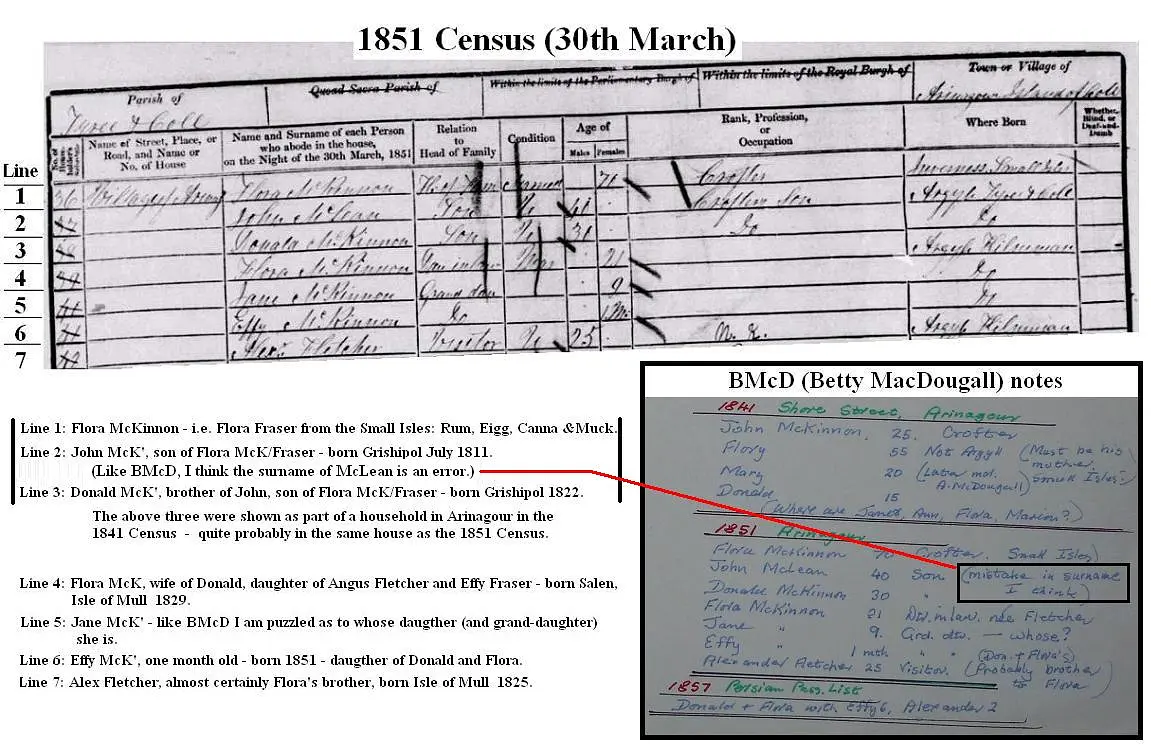 1851 Census (30th March)
Parish of
Tyree & Coll
Quoad Sacra Parish of
Within the limits of the Parliamentary Burgh of
Within the limits of the Royal Burgh of
Town or Village of
Arinagour Island of Coll
Name of Street, Place, or Road, and Name or No. of House
Name and Surname of each Person who abode in the house, on the Night of the 30th March, 1851
Relation to Head of Family
Condition
Age of
Males Females
Rank, Profession, or Occupation
Where Born
Whether Blind, or Deaf-and-Dumb
Line
1 36 Flora McKinnon 71 Crofter Inverness Small Isles
2 John McLean Son Un 41 Crofters Son Argyle Tyree & Coll
3 Donald McKinnon Son 31 Do Do
4 Flora McKinnon Mar 21 Argyle
5 Jane McKinnon 9 Do
6 Effy McKinnon Do 1 M Do
7 Alexr Fletcher Visitor Un 25 N.K. Argyle
Line 1: Flora McKinnon - i.e. Flora Fraser from the Small Isles: Rum, Eigg, Canna &Muck.
Line 2: John McK', son of Flora McK/Fraser - born Grishipol July 1811.
(Like BMcD, I think the surname of McLean is an error.)
Line 3: Donald McK', brother of John, son of Flora McK/Fraser - born Grishipol 1822.
The above three were shown as part of a household in Arinagour in the
1841 Census - quite probably in the same house as the 1851 Census.
Line 4: Flora McK, wife of Donald, daughter of Angus Fletcher and Effy Fraser - born Salen,
Isle of Mull 1829.
Line 5: Jane McK' - like BMcD I am puzzled as to whose daugther (and grand-daughter)
she is.
Line 6: Effy McK', one month old - born 1851 - daugther of Donald and Flora.
Line 7: Alex Fletcher, almost certainly Flora's brother, born Isle of Mull 1825.
BMcD (Betty MacDougall) notes
1841 Shore Street, Arinagour
John McKinnon. 25. Crofter
Flory 55 Not Argyll (Must be his mother. Small Isles.)
Mary 20 (Later md. A. McDougall)
Donald 15
(Where are Janet, Ann, Flora, Marion?)
1851 Arinagour
Flora McKinnon 70 Crofter. Small Isles)
John McLean 40 Son (mistake in surname I think)
Donald McKinnon 30 "
Flora McKinnon 21 Dtr. in law. née Fletcher
Jane " 9. Grd. dtr. — whose?
Effy " 1 mth " " (Don. & Flora's)
Alexander Fletcher 25 Visitor. (Probably brother to Flora)
1857 Persian Pass. List
Donald & Flora with Effy 6, Alexander 2